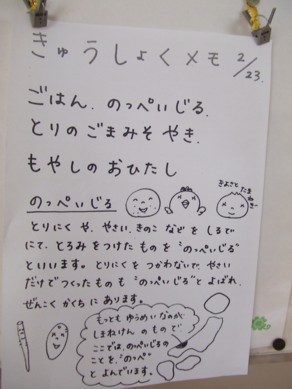 きゅうしょくメモ 2/23.
ごはん. のっぺいじる.
とりの ごまみそ やき.
もやしの おひたし
のっぺいじる
きよさと たまねぎ
とりにく や、やさい、きのこ などを しるで
にて、とろみを つけた ものを "のっぺいじる"
といいます。とりにくを つかわないで、やさい
だけで つくった ものも "のっぺいじる"と よばれ、
ぜんこく かくちに あります。
もっとも ゆうめい なのが
しまねけん の もので
ここでは、のっぺいじるの
ことを、"のっぺ"
と よんでいます。